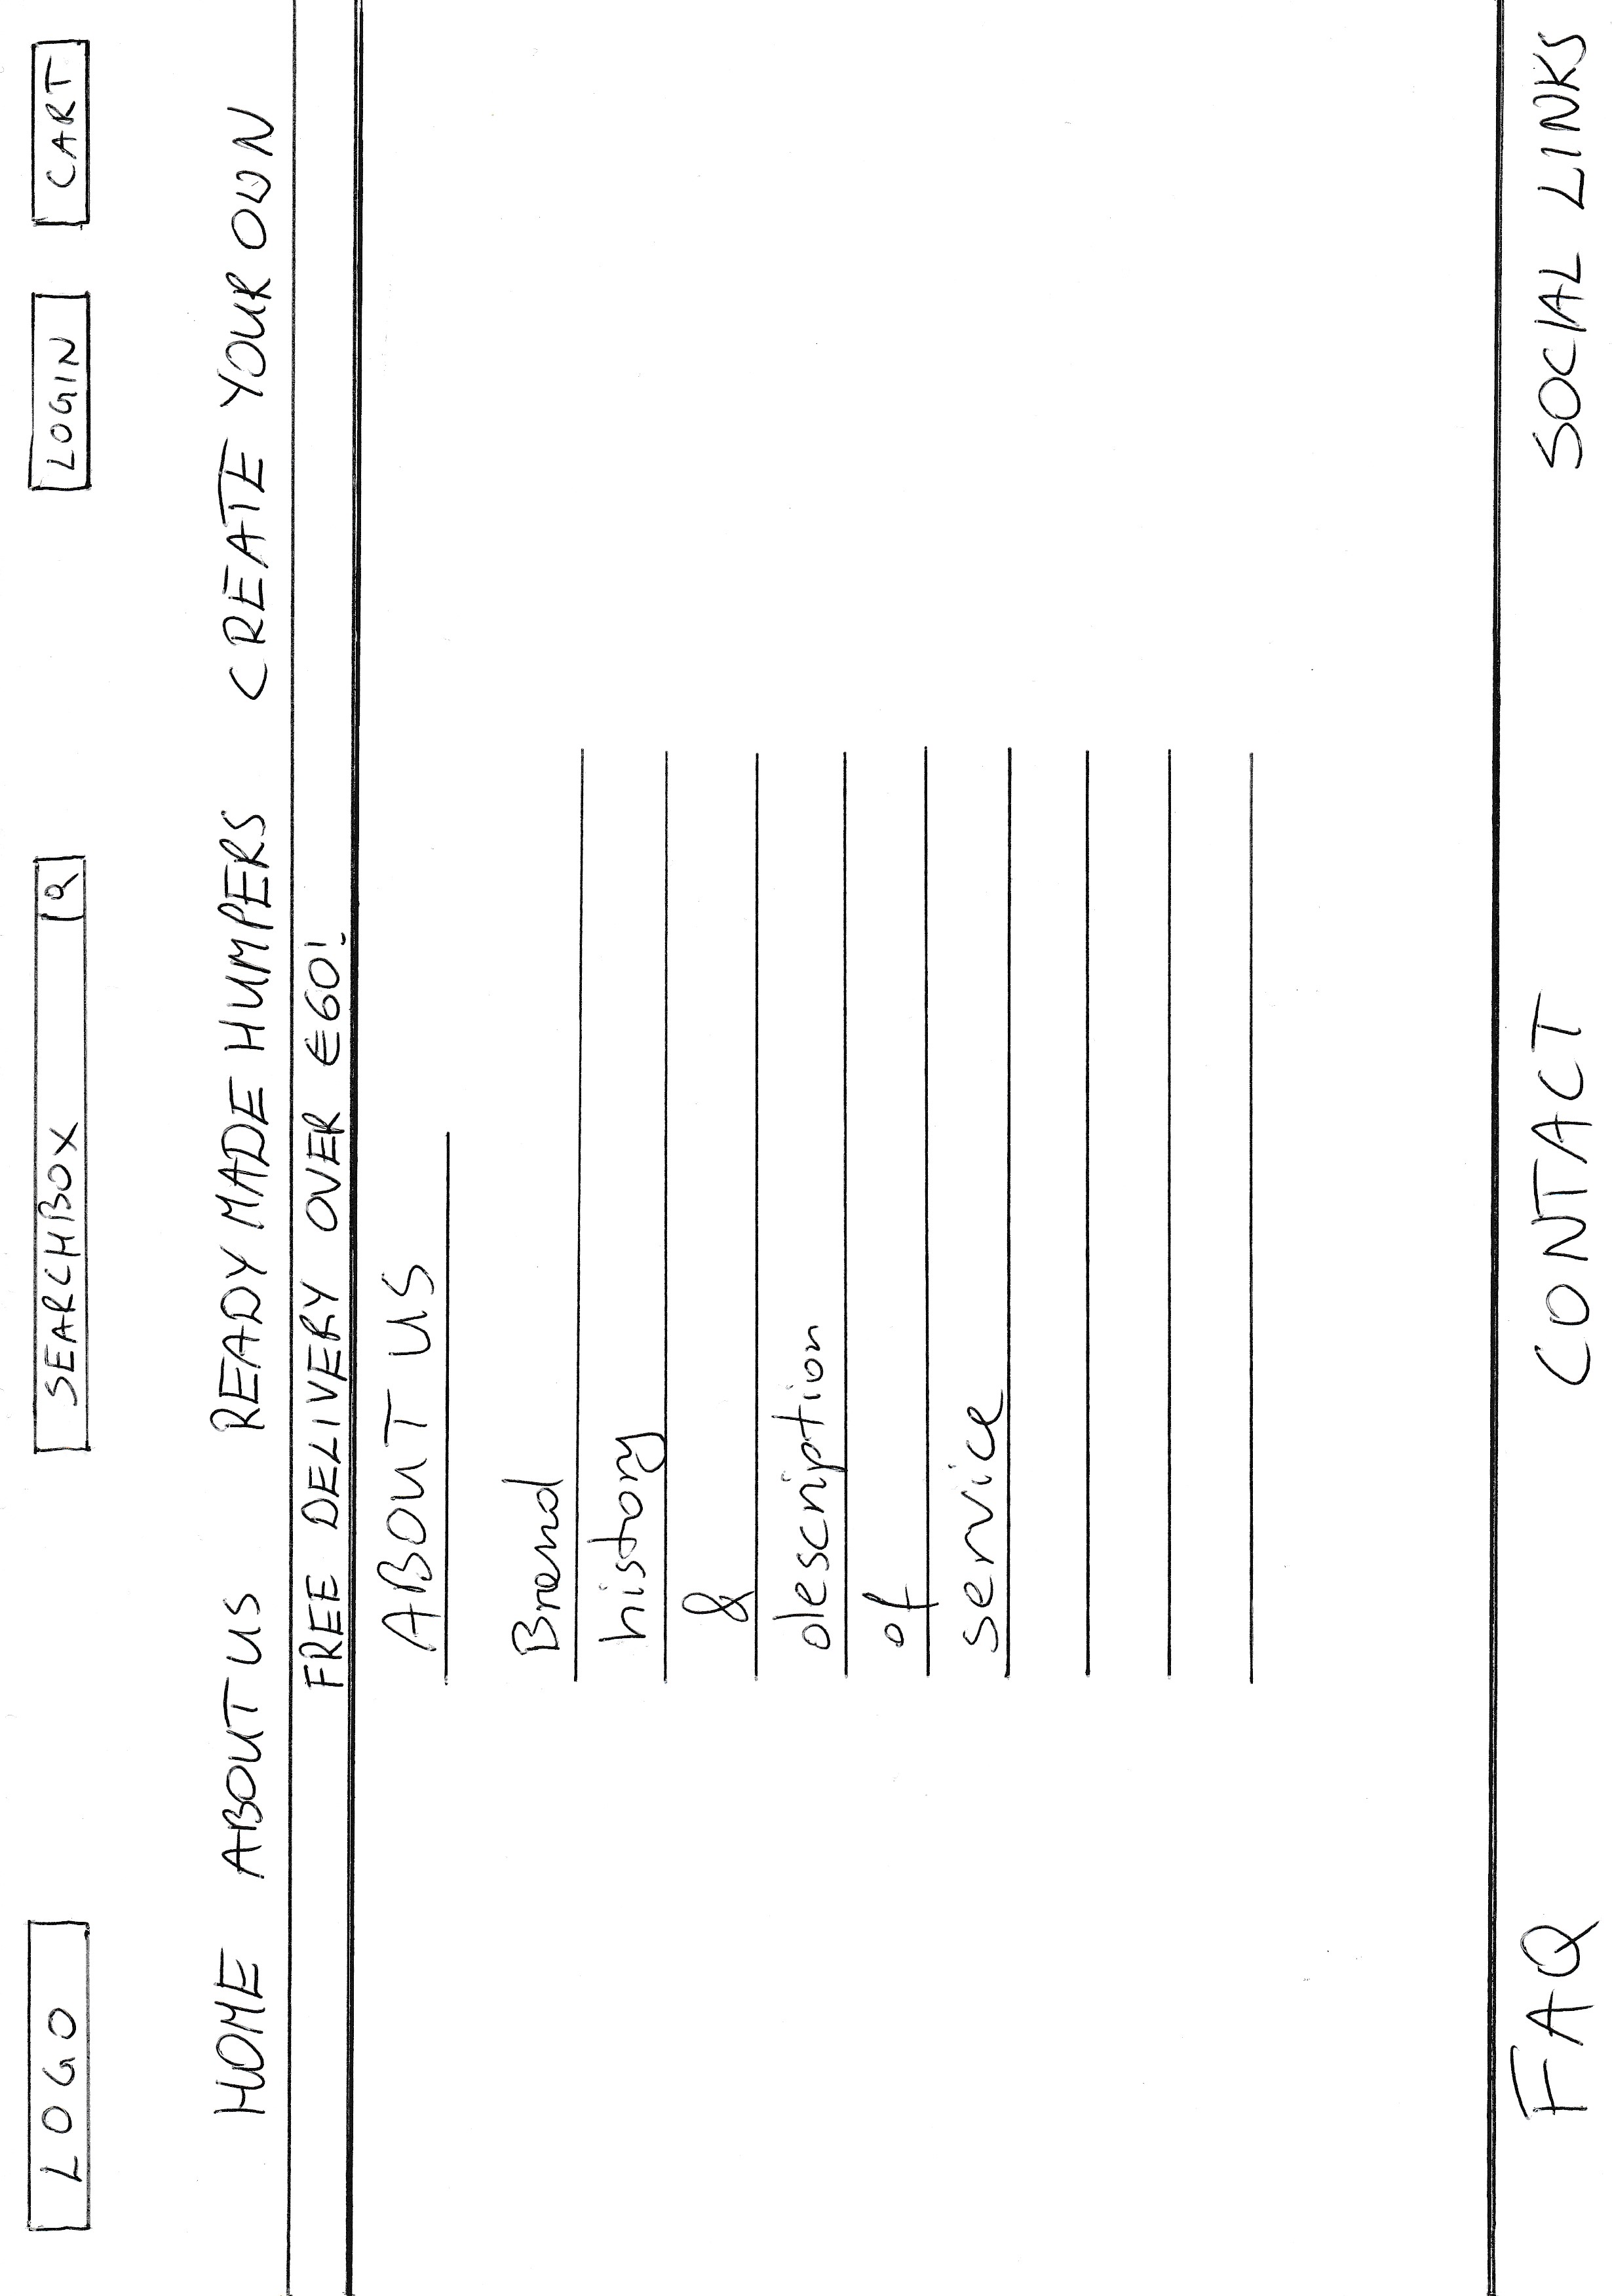 LOGO SEARCHBOX LOGIN CART
HOME ABOUT US READY MADE HUMPERS CREATE YOUR OWN
FREE DELIVERY OVER €60!
ABOUT US
Brand
history
&
description
of
service
FAQ CONTACT SOCIAL LINKS